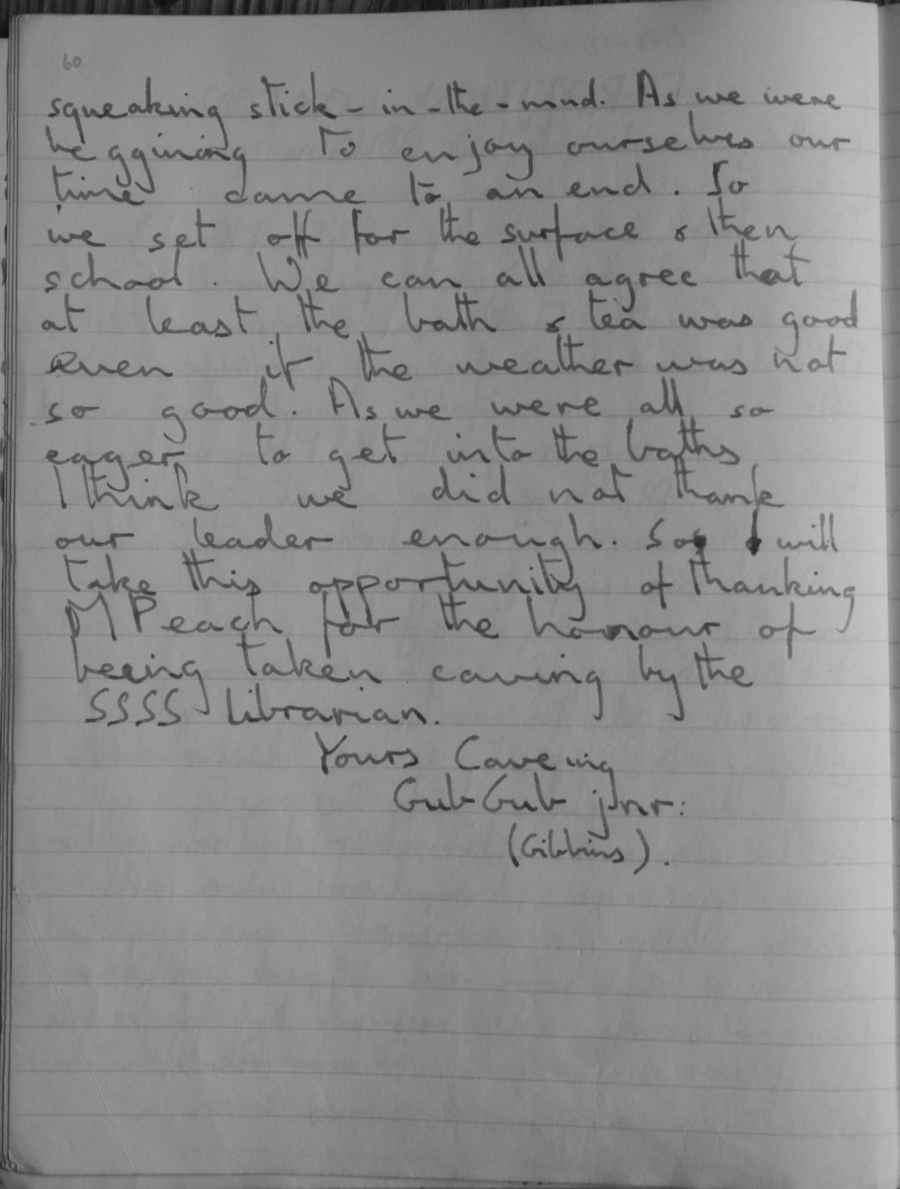 60
squeaking stick-in-the-mud. As we were
beggining to enjoy ourselves our
time came to an end. So
we set off for the surface & then
school. We can all agree that
at least the bath & tea was good
even if the weather was not
so good. As we were all so
eager to get into the baths
I think we did not thank
our leader enough. So I will
take this opportunity of thanking
M Peach for the honour of
being taken caving by the
SSSS librarian.
Yours Caveing
Gub-Gub jnr:
(Gibbins).